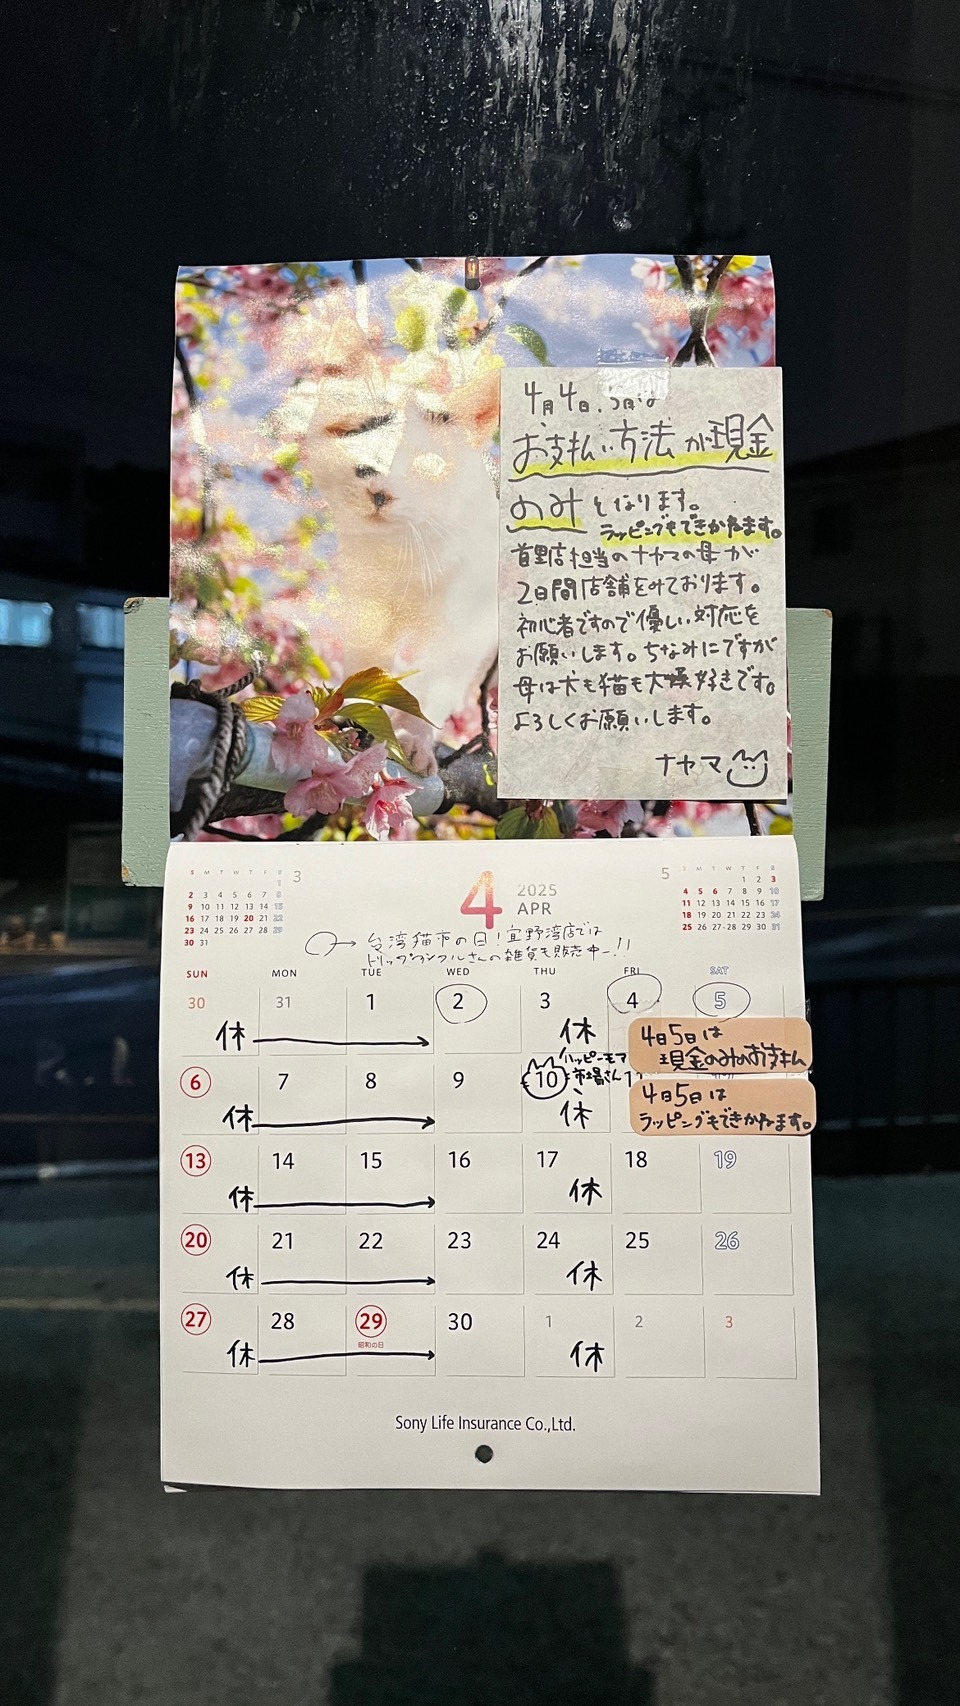 4月4日、5日は
お支払い方法が現金
のみとなります。
ラッピングもできかねます。
首里店担当のナヤマの母が
2日間店舗をみております。
初心者ですので優しい対応を
お願いします。ちなみにですが
母は犬も猫も大好きです。
よろしくお願いします。
ナヤマ
3
S M T W T F S
1
2 3 4 5 6 7 8
9 10 11 12 13 14 15
16 17 18 19 20 21 22
23 24 25 26 27 28 29
30 31
4
2025
APR
5
S M T W T F S
1 2 3
4 5 6 7 8 9 10
11 12 13 14 15 16 17
18 19 20 21 22 23 24
25 26 27 28 29 30 31
→台湾猫市の日!宜野湾店では
さんの雑貨も販売中ー!!
SUN MON TUE WED THU FRI SAT
30 31 1 2 3 4 5
休 休
4日5日は
現金のみのお支払い
6 7 8 9 10 11
ハッピーモア
市場さん
休 休
4日5日は
ラッピングもできかねます。
13 14 15 16 17 18 19
休 休
20 21 22 23 24 25 26
休 休
27 28 29 30 1 2 3
昭和の日
休 休
Sony Life Insurance Co.,Ltd.